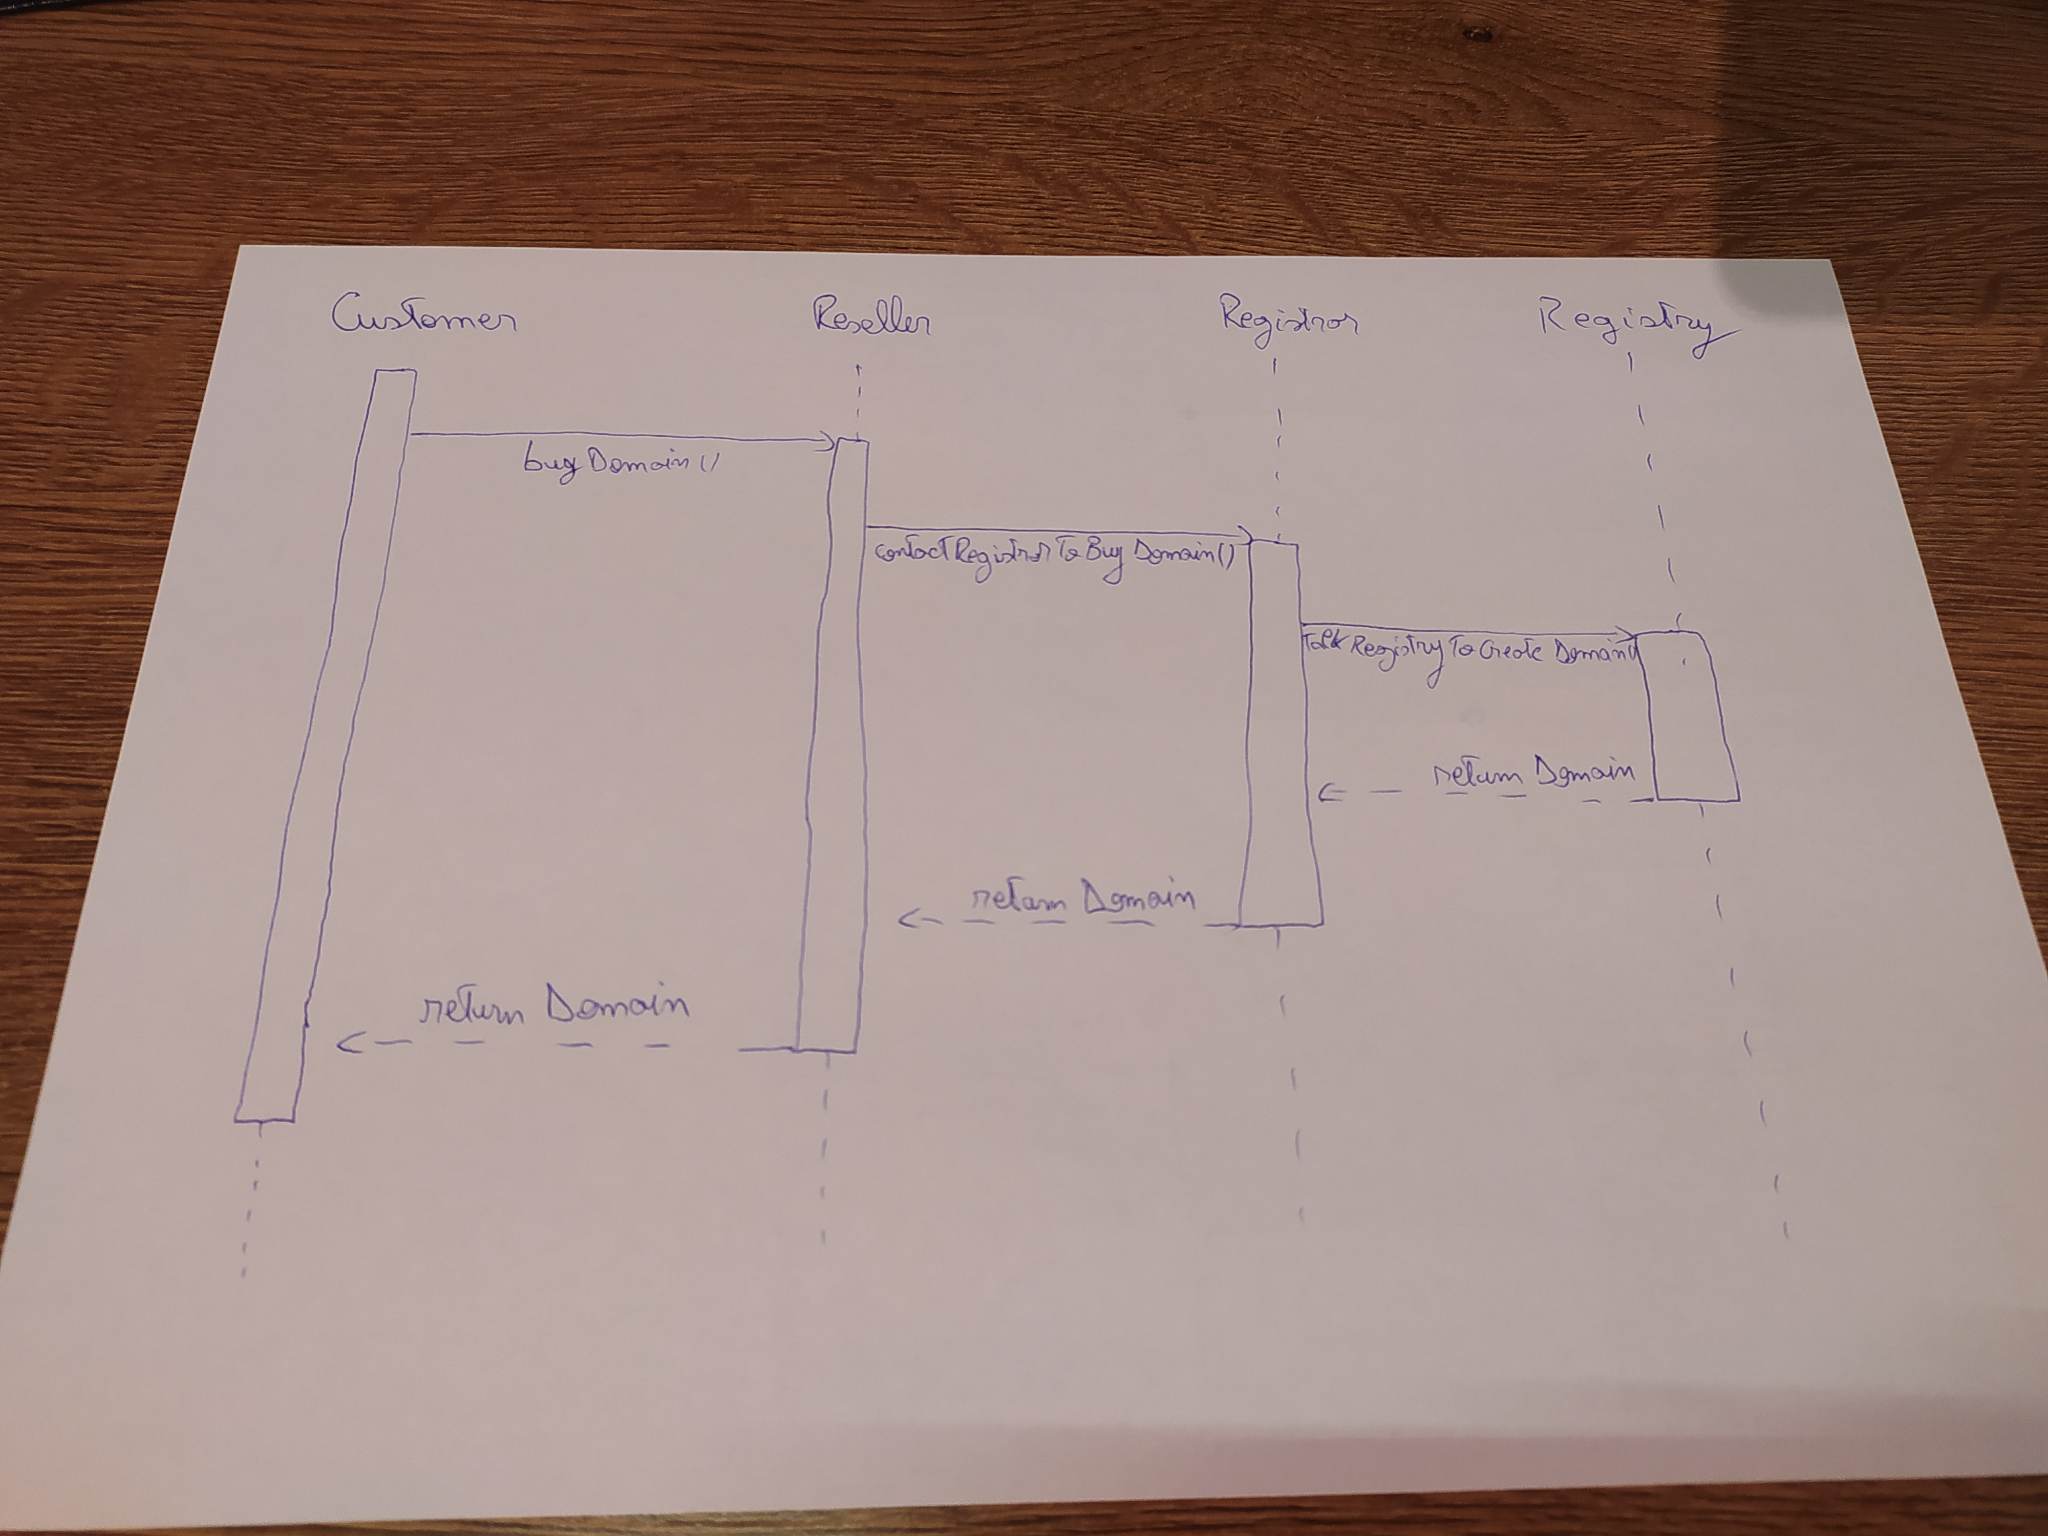 Customer
Reseller
Registrar
Registry
buy Domain ()
contact Registrar To Buy Domain ()
Talk Registry To Create Domain ()
return Domain
return Domain
return Domain